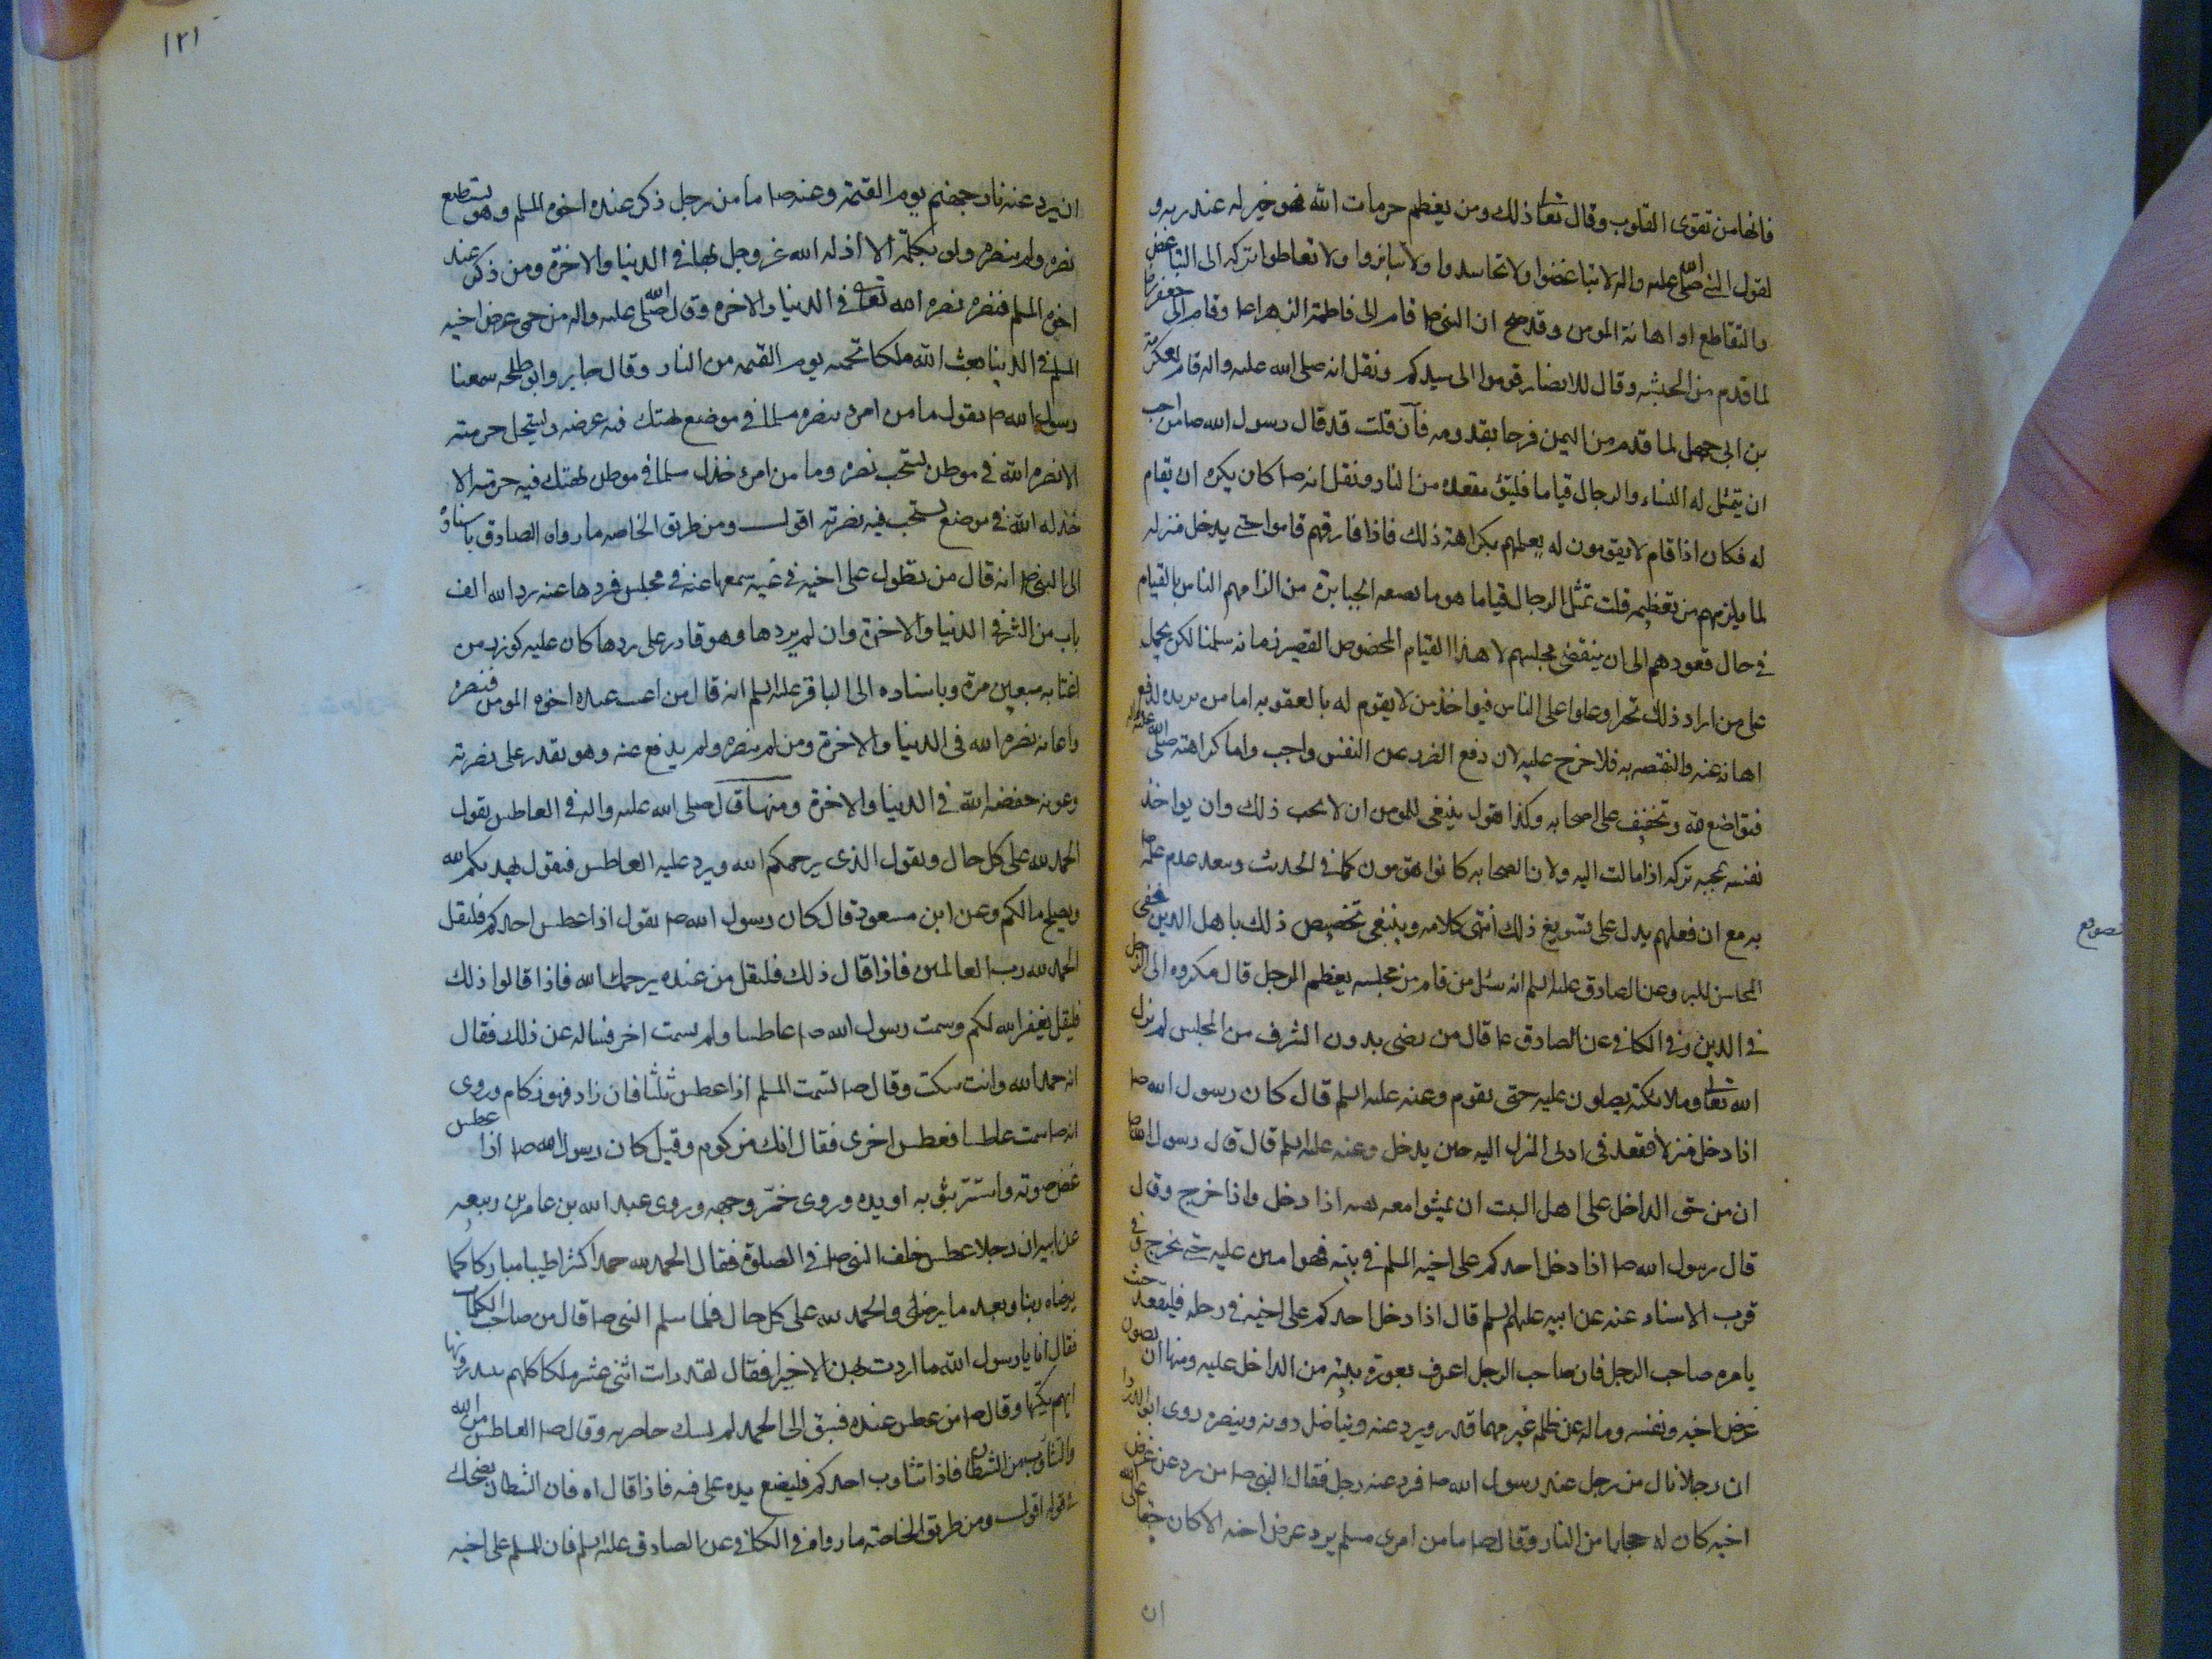 فانها من تقوى القلوب وقال تعا ذلك ومن يعظم حرمات الله فهو خير له عند ربه و
لقول النبي صلى الله عليه واله لا تباغضوا ولا تحاسدوا ولا تنابزوا ولا تعاطوا تركه الى التباغض
والتقاطع او اهانة المومن وقد صح ان النبي ص قام الى فاطمة الزهرا ع وقام الى جعفر رض
لما قدم من الحبشه وقال للانصار قوموا الى سيدكم ونقل انه صلى الله عليه واله قام لعكرمة
بن ابى جهل لما قدم من اليمن فرحا بقدومه فآن قلت قد قال رسول الله ص من احب
ان يتمثل له النساء والرجال قياما فليتبؤ مقعده من النار ونقل انه ص كان يكره ان يقام
له فكان اذا قام لا يقومون له يعلمهم بكراهة ذلك فاذا فارقهم قاموا حتى يدخل منزله
لما يلزمهم من تعظيمه قلت تمثل الرجال قياما هو ما يصنعه الجبابرة من الزامهم الناس بالقيام
فى حال قعودهم الى ان ينقضى مجلسهم لا هذا القيام المخصوص القصير زمانه سلمنا لكن يحمل
على من اراد ذلك تجبرا وعلوا على الناس فيواخذ من لا يقوم له بالعقوبه اما من يريده لدفع
اهانة عنه والنقصه به فلا حرج عليه لان دفع الضرر عن النفس واجب واما كراهته صلى الله عليه واله
فتواضع لله وتخفيف على اصحابه وكذا نقول ينبغى للمومن ان لا يحب ذلك وان يواخذ
نفسه بمحبه تركه اذا مالت اليه ولان الصحابه كانوا يقومون كما فى الحديث وبعد عدم علمه ص
به مع ان فعلهم يدل على تسويغ ذلك انتهى كلامه وينبغى تخصيص ذلك باهل الدين
وعن الصادق عليه السلم انه سئل من قام من مجلسه يعظم الرجل قال مكروه الى الرجل
فى الدين وفى الكافى عن الصادق ع قال من رضى بدون الشرف من المجلس لم يزل
الله تعا وملائكته يصلون عليه حتى يقوم وعنه عليه السلم قال كان رسول الله ص
اذا دخل منزلا قعد فى ادنى المنزل اليه حين يدخل وعنه عليه السلم قال قال رسول الله ص
ان من حق الداخل على اهل البيت ان يمشوا معه هنيه اذا دخل واذا خرج وقال
قال رسول الله ص اذا دخل احدكم على اخيه المسلم فى بيته فهو امين عليه حتى يخرج وفى
قرب الاسناد عنه عن ابيه عليهم السلم قال اذا دخل احدكم على اخيه فى رحله فليقعد حيث
يامره صاحب الرحل فان صاحب الرحل اعرف بعورة بيته من الداخل عليه ومنها ان يصون
عرض اخيه ونفسه وماله عن ظلم غيره مهما قدر ويرد عنه ويناضل دونه وينصره روى ابو الدردا
ان رجلا نال من رجل عند رسول الله ص فرد عنه رجل فقال النبى ص من رد عن عرض
اخيه كان له حجابا من النار وقال ص ما من امرى مسلم يرد عن عرض اخيه الا كان حقا على الله
ان
١٢١
ان يرد عنه نار جهنم يوم القيمة وعنه ص ما من رجل ذكر عنده اخوه المسلم وهو يستطيع
نصره ولم ينصره ولو بكلمة الا اذله الله عز وجل بها فى الدنيا والاخرة ومن ذكر عنده
اخوه المسلم فنصره نصره الله تعالى فى الدنيا والاخره وقال صلى الله عليه واله من حمى عرض اخيه
المسلم فى الدنيا بعث الله ملكا تحميه يوم القيمه من النار وقال جابر وابو طلحه سمعنا
رسول الله ص يقول ما من امرء ينصر مسلما فى موضع يهتك فيه عرضه ويستحل حرمته
الا نصره الله فى موطن يستحب نصره وما من امرء خذل مسلما فى موطن يهتك فيه حرمته الا
خذله الله فى موضع يستحب فيه نصرته اقول ومن طريق الخاصه ما رواه الصادق باسناده
الى النبى ص انه قال من تطول على اخيه فى غيبة سمعها عنه فى مجلس فردها عنه رد الله الف
باب من الشر فى الدنيا والاخرة وان لم يردها وهو قادر على ردها كان عليه كوزر من
اغتابه سبعين مرة وباسناده الى الباقر عليه السلم انه قال من اغتيب عنده اخوه المومن فنصره
واعانه نصره الله فى الدنيا والاخرة ومن لم ينصره ولم يدفع عنه وهو يقدر على نصرته
وعونه خفضه الله فى الدنيا والاخرة ومنها قال صلى الله عليه واله فى العاطس يقول
الحمد لله على كل حال ويقول الذى يرحمكم الله ويرد عليه العاطس فيقول يهديكم الله
ويصلح بالكم وعن ابن مسعود قال كان رسول الله ص يقول اذا عطس احدكم فليقل
الحمد لله رب العالمين فاذا قال ذلك فليقل من عنده يرحمك الله فاذا قالوا ذلك
فليقل يغفر الله لكم وسمت رسول الله ص عاطسا ولم يسمت اخر فساله عن ذلك فقال
انه حمد الله وانت سكت وقال ص يسمت المسلم اذا عطس ثلثا فان زاد فهو زكام وروى
انه ص سمت عاطسا فعطس اخرى فقال انك مزكوم وقيل كان رسول الله ص اذا عطس
غض صوته واستتر بثوبه او يده وروى خمر وجهه وروى عبد الله بن عامر بن ربيعه
عن ابيه ان رجلا عطس خلف النبى ص فى الصلوة فقال الحمد لله حمدا كثيرا طيبا مباركا كما
يرضاه ربنا وبعد ما يرضى والحمد لله على كل حال فلما سلم النبى ص قال من صاحب الكلمات
فقال انا يا رسول الله ما اردت بهن الا خيرا فقال لقد رايت اثنى عشر ملكا كلهم يبتدرونها
ايهم يكتبها وقال ص من عطس عنده فسبق الى الحمد لم يشتك خاصرته وقال ص العاطس من الله
والتثاوب من الشيطان فاذا تثاوب احدكم فليضع يده على فيه فاذا قال اه فان الشيطان يضحك
اقول ومن طريق الخاصة ما رواه فى الكافى عن الصادق عليه السلم فان للمسلم على اخيه